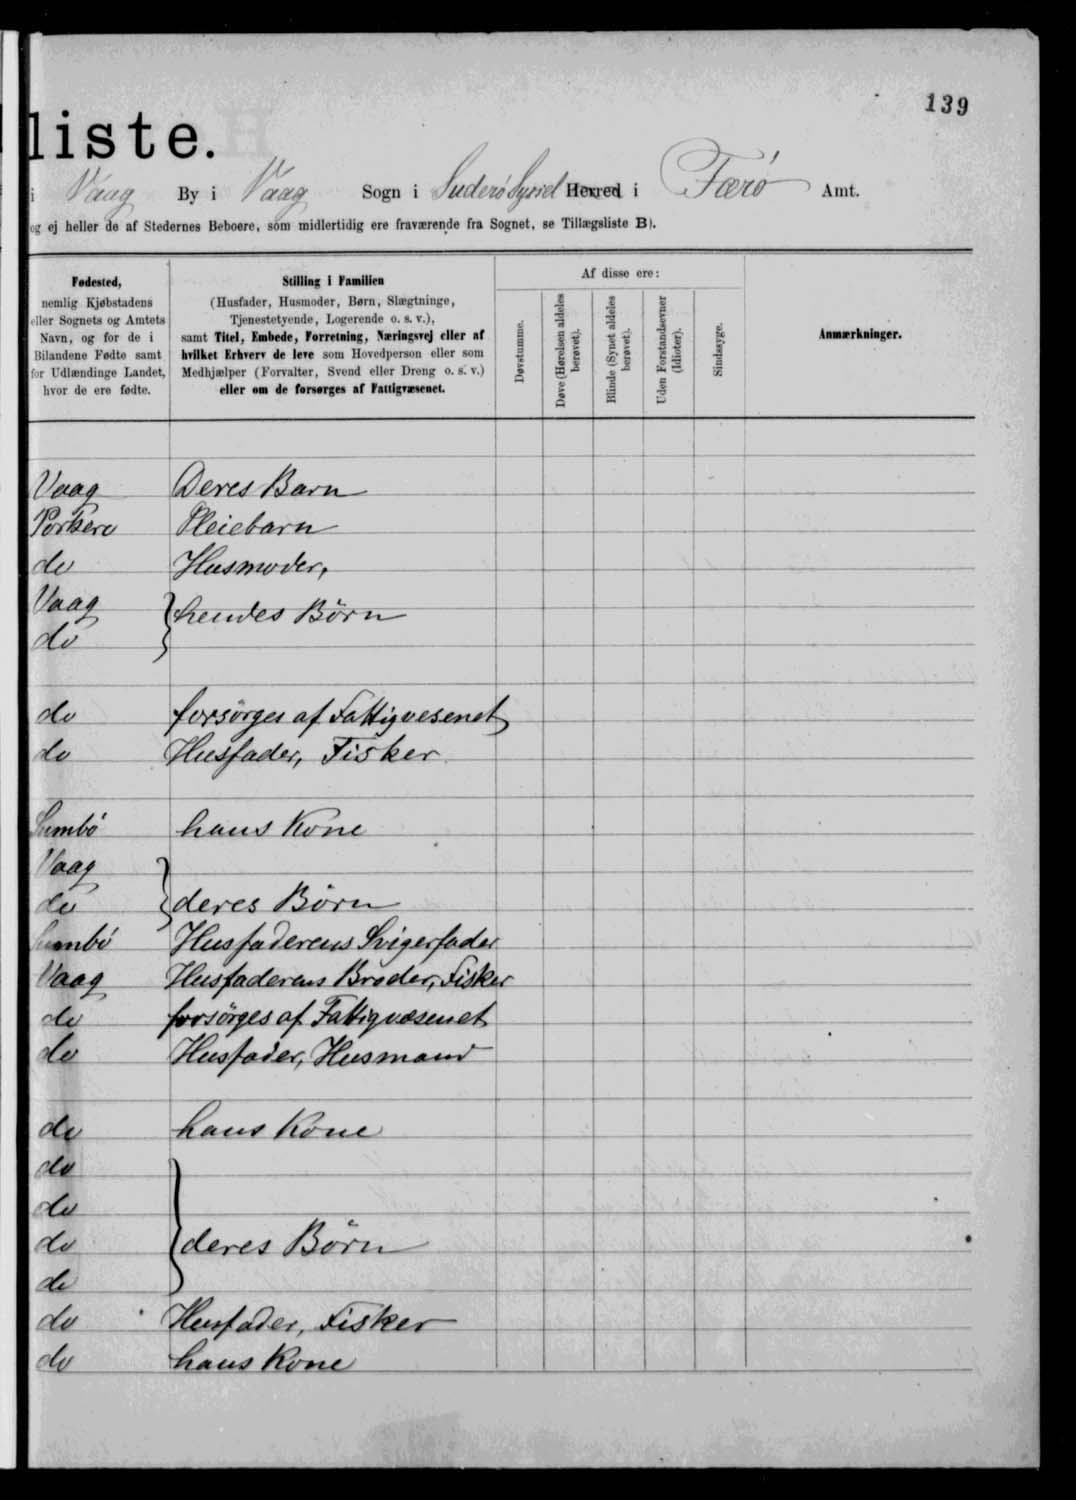 139
liste.
i Vaag By i Vaag Sogn i Suderø Syssel Herred i Færø Amt.
og ej heller de af Stedernes Beboere, som midlertidig ere fraværende fra Sognet, se Tillægsliste B).
Fødested,
nemlig Kjøbstadens
eller Sognets og Amtets
Navn, og for de i
Bilandene Fødte samt
for Udlændinge Landet,
hvor de ere fødte.
Stilling i Familien
(Husfader, Husmoder, Børn, Slægtninge,
Tjenestetyende, Logerende o. s. v.),
samt Titel, Embede, Forretning, Næringsvej eller af
hvilket Erhverv de leve som Hovedperson eller som
Medhjælper (Forvalter, Svend eller Dreng o. s. v.)
eller om de forsørges af Fattigvæsenet.
Af disse ere:
Døvstumme.
Døve (Hørelsen aldeles
berøvet).
Blinde (Synet aldeles
berøvet).
Uden Forstandsevner
(Idioter).
Sindssyge.
Anmærkninger.
Vaag Deres Barn
Porkere Pleiebarn
do Husmoder,
Vaag
hendes Børn
do
do forsörges af Fattigvesenet
do Husfader, Fisker
Sumbö hans Kone
Vaag
do deres Börn
Sumbö Husfaderens Svigerfader
Vaag Husfaderens Broder, Fisker
do forsörges af Fattigvæsenet
do Husfader, Husmand
do hans Kone
do
do
do deres Börn
do
do Husfader, Fisker
do hans Kone